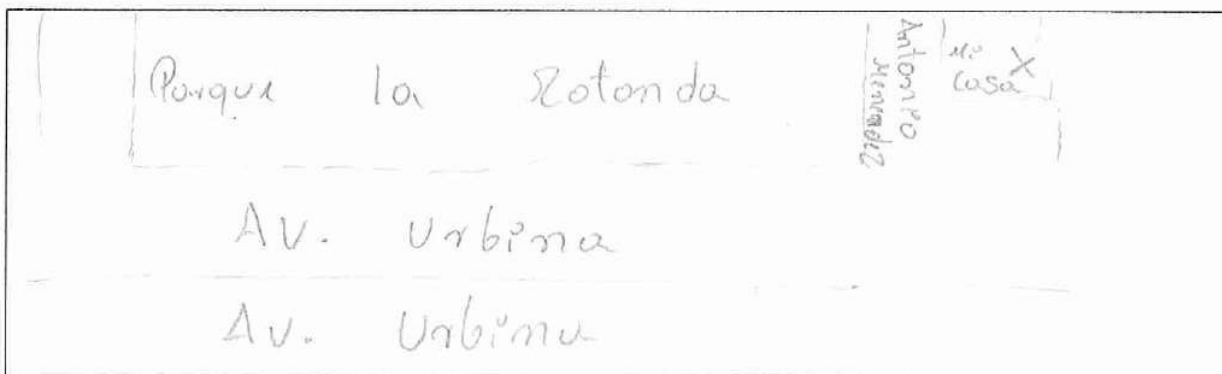 Parque la Rotonda
Antonio
Menendez
Mi
Casa X
Av. Urbina
Av. Urbina